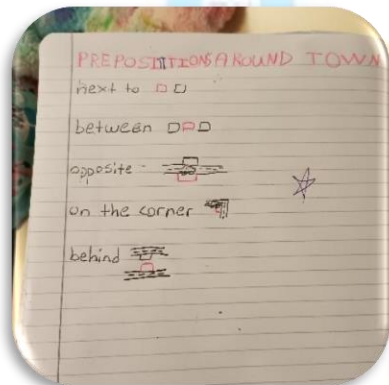 PREPOSITIONS AROUND TOWN
next to
between
opposite -
on the corner
behind